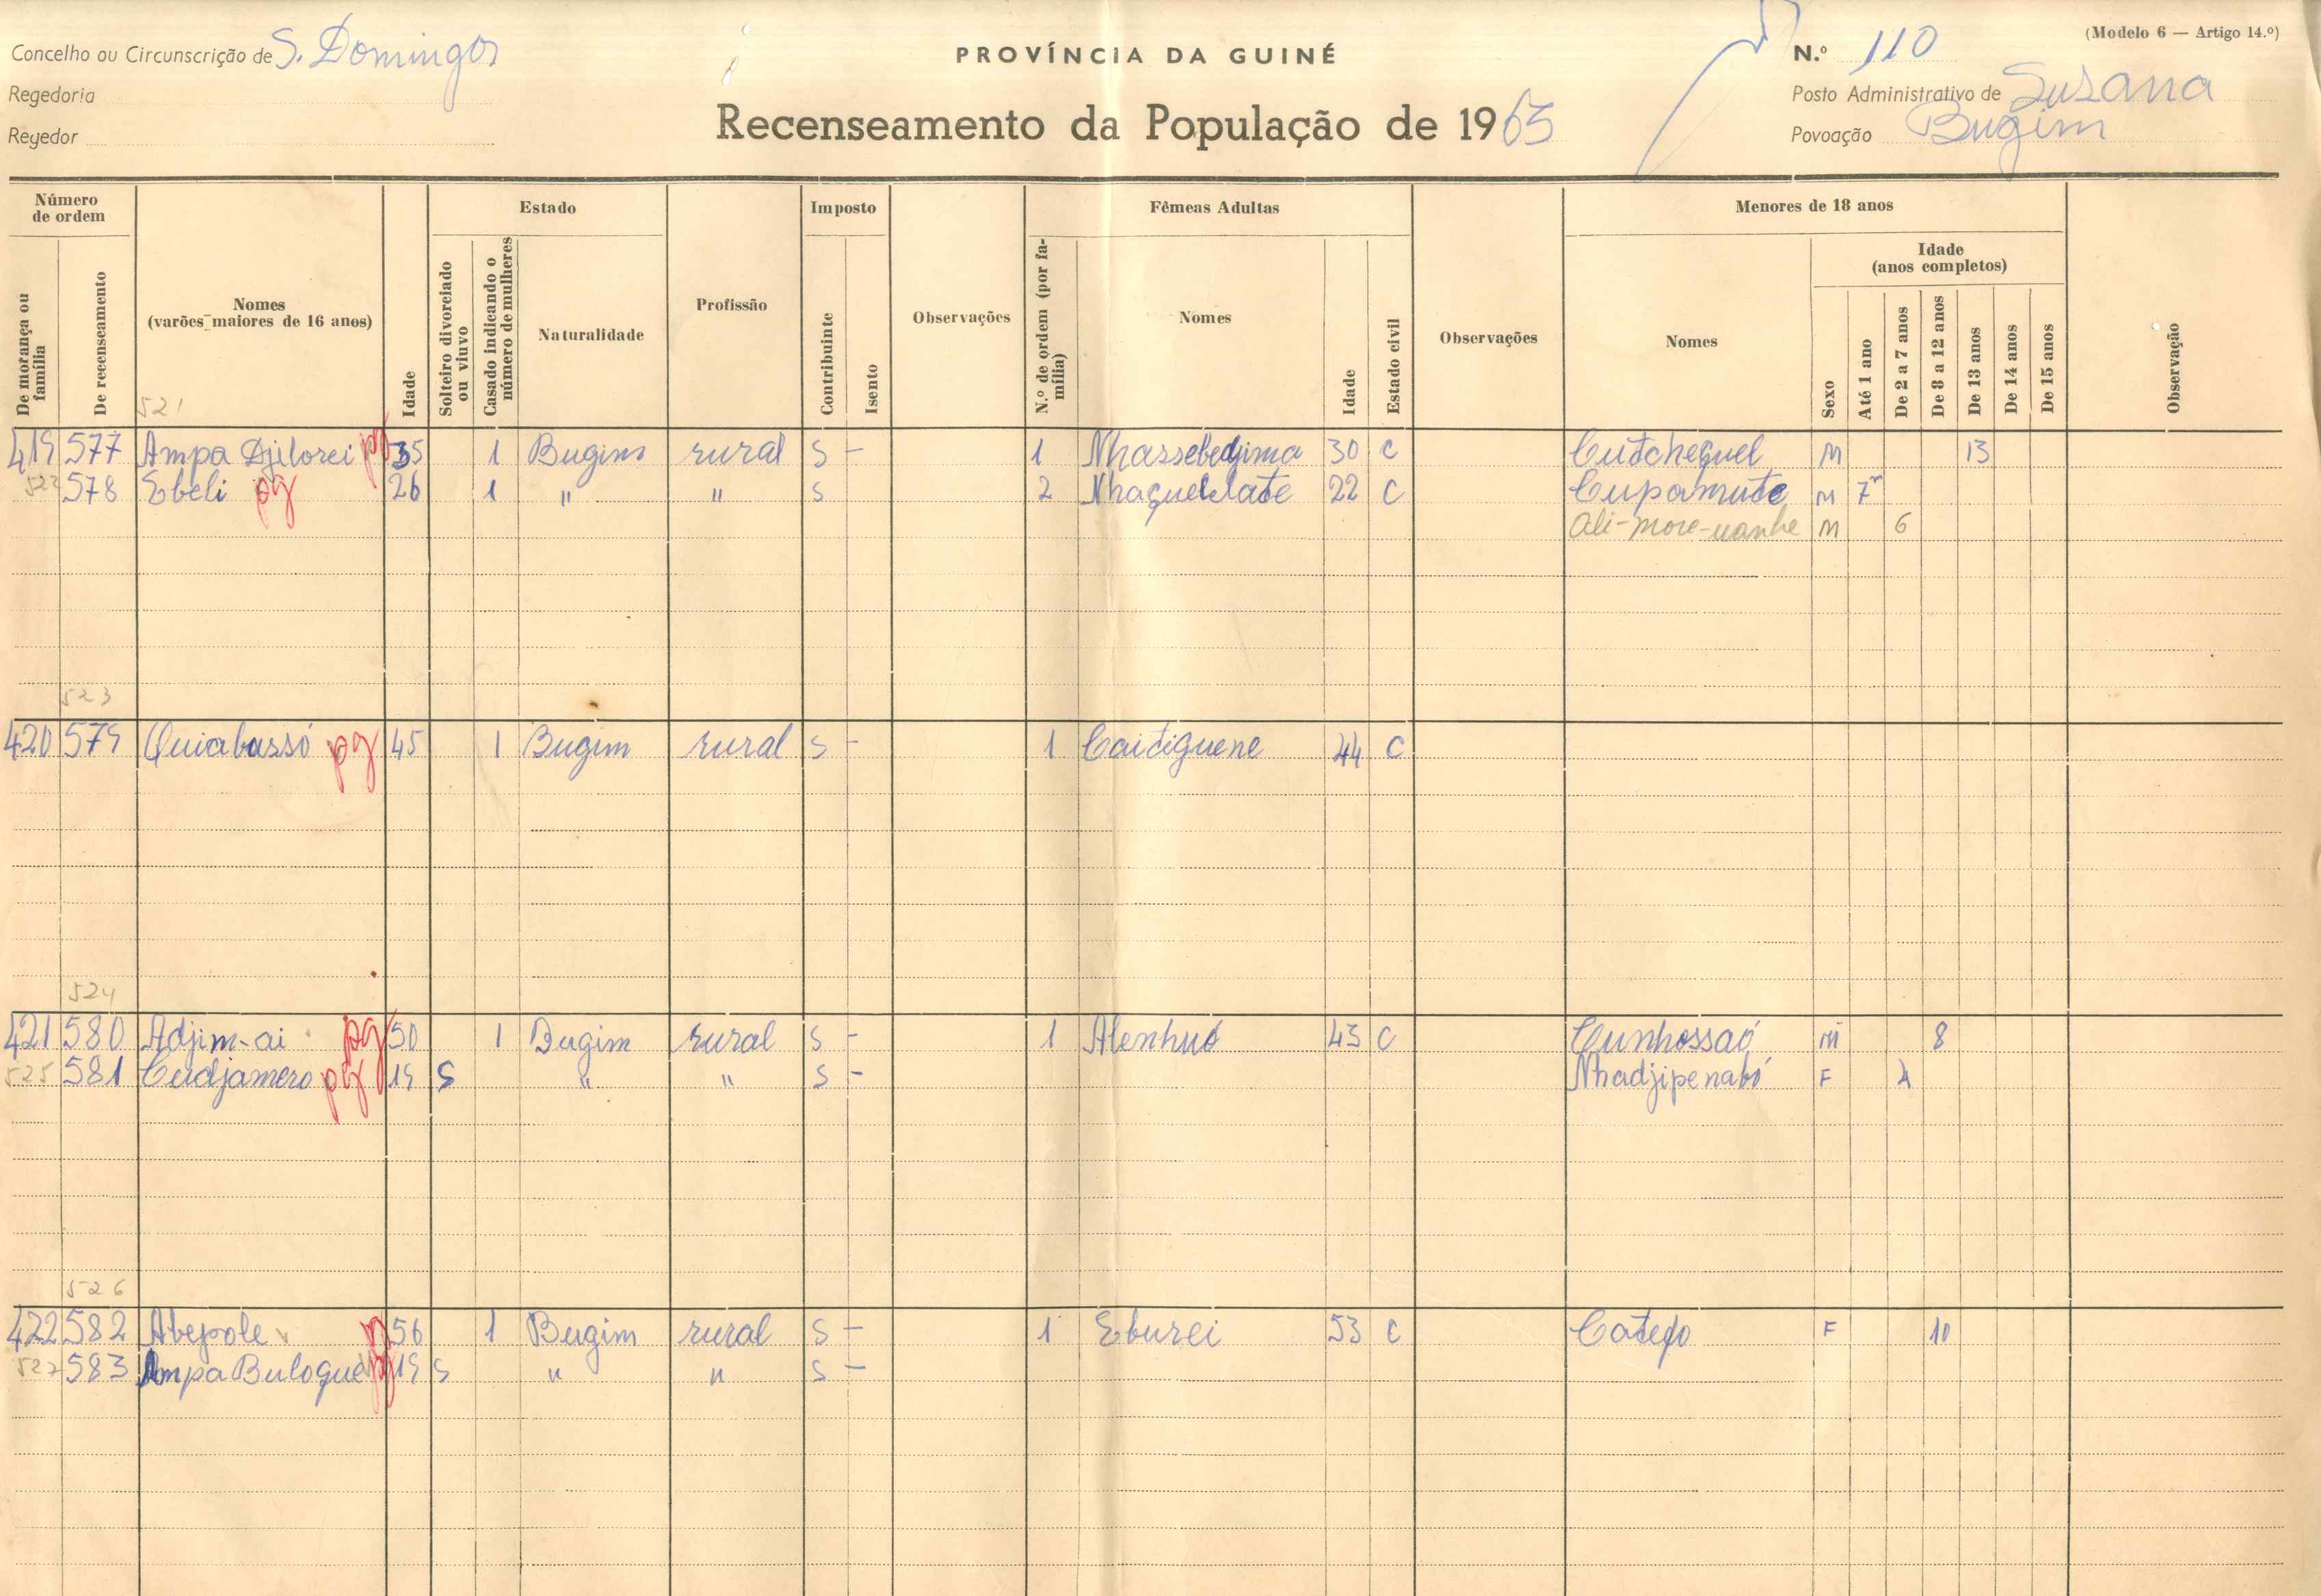 (Modelo 6 — Artigo 14.º)
Concelho ou Circunscrição de S. Domingos PROVÍNCIA DA GUINÉ N.º 110
Regedoria Posto Administrativo de Suzana
Regedor Recenseamento da População de 1965 Povoação Bugim
Número de ordem Estado Imposto Fêmeas Adultas Menores de 18 anos
De morança ou família De recenseamento Nomes (varões maiores de 16 anos) Idade Solteiro divorciado ou viuvo Casado indicando o número de mulheres Naturalidade Profissão Contribuinte Isento Observações N.º de ordem (por família) Nomes Idade Estado civil Observações Nomes Sexo Idade (anos completos) Até 1 ano De 2 a 7 anos De 8 a 12 anos De 13 anos De 14 anos De 15 anos Observação
521
419 577 Ampa Djilorei pg 35 1 Bugim rural S - 1 Nhassebedjima 30 C Cutcheguel M 13
522 578 Ebeli pg 26 1 " " S 2 Nhaquelelate 22 C Cupamute M 7m
Ali-more-uanhe M 6
523
420 579 Quiabassó pg 45 1 Bugim rural S - 1 Caitiguene 44 C
524
421 580 Adjim-ai pg 50 1 Bugim rural S - 1 Alenhuó 43 C Cunhossaó M 8
525 581 Cudjamero pg 19 S " " S - Nhadjipenabó F 4
526
422 582 Abepole pg 56 1 Bugim rural S - 1 Eburei 53 C Catepo F 10
527 583 Ampa Bulogue pg 19 S " " S -